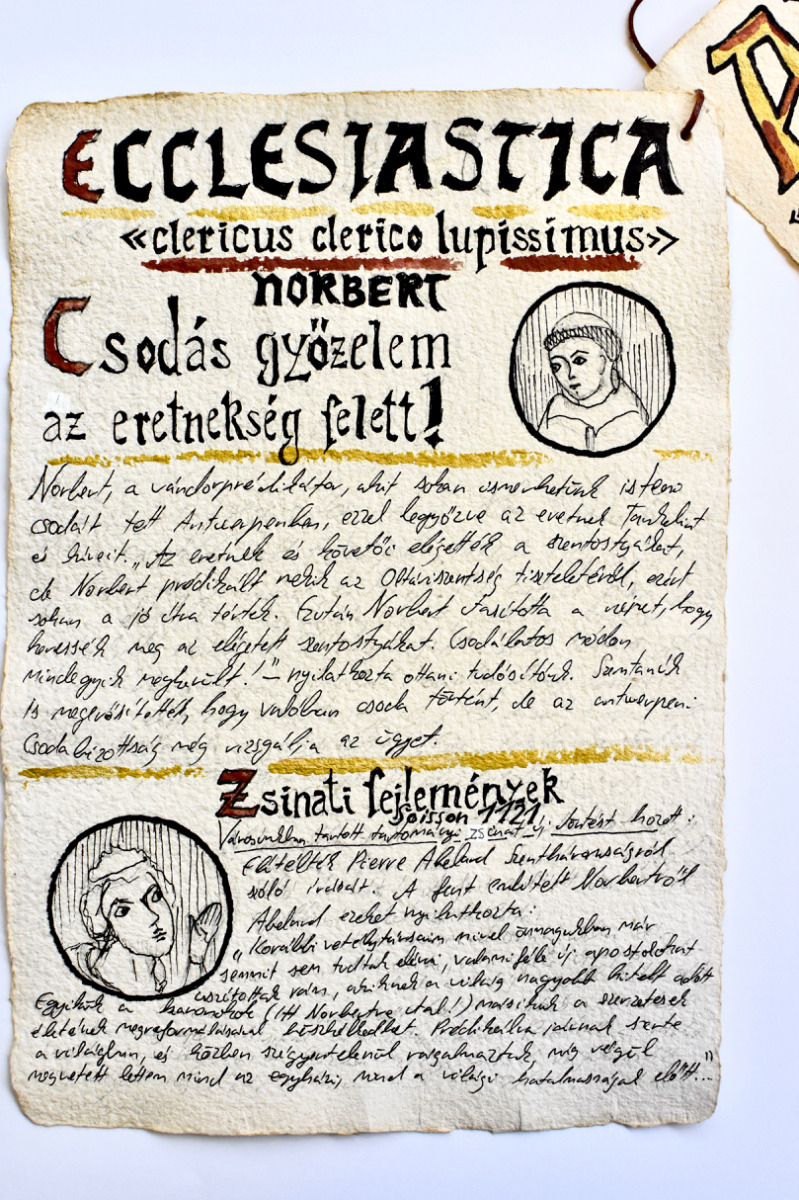 ECCLESIASTICA
«clericus clerico lupissimus»
NORBERT
Csodás győzelem
az eretnekség felett!
Norbert, a vándorprédikátor, akit sokan ismerhetünk isteni
csodáit tett Antwerpenben, ezzel legyőzve az eretnek Tankelint
és híveit. „Az eretnek és követői elégették a szentostyákat,
de Norbert prédikált nekik az Oltáriszentség tiszteletéről, ezért
sokan a jó útra tértek. Ezután Norbert utasította a népet, hogy
keressék meg az elégetett szentostyákat. Csodálatos módon
mindegyik megkerült!" – nyilatkozta ottani tudósítónk. Szemtanúk
is megerősítették, hogy valóban csoda történt, de az antwerpeni
Csodabizottság még vizsgálja az ügyet.
Zsinati fejlemények
Soisson 1121
Városunkban tartott tartományi zsinat új döntést hozott:
Elítélték Pierre Abelard Szentháromságról
szóló írásait. A fent említett Norbertről
Abelard ezeket nyilatkozta:
„Korábbi vetélytársaim mivel önmagukban már
semmit sem tudtak elérni, valamiféle új apostolokat
uszítottak rám, akiknek a világ nagyobb hitelt adott
Egyikük a kanonokok (itt Norbertre utal!) másiknak a szerzetesek
életének megreformálásával büszkélkedhet. Prédikálva jártak szerte
a világban, és közben szégyentelenül rágalmaztak, míg végül
megvetett lettem mind az egyházi, mind a világi hatalmasságok előtt..."
A